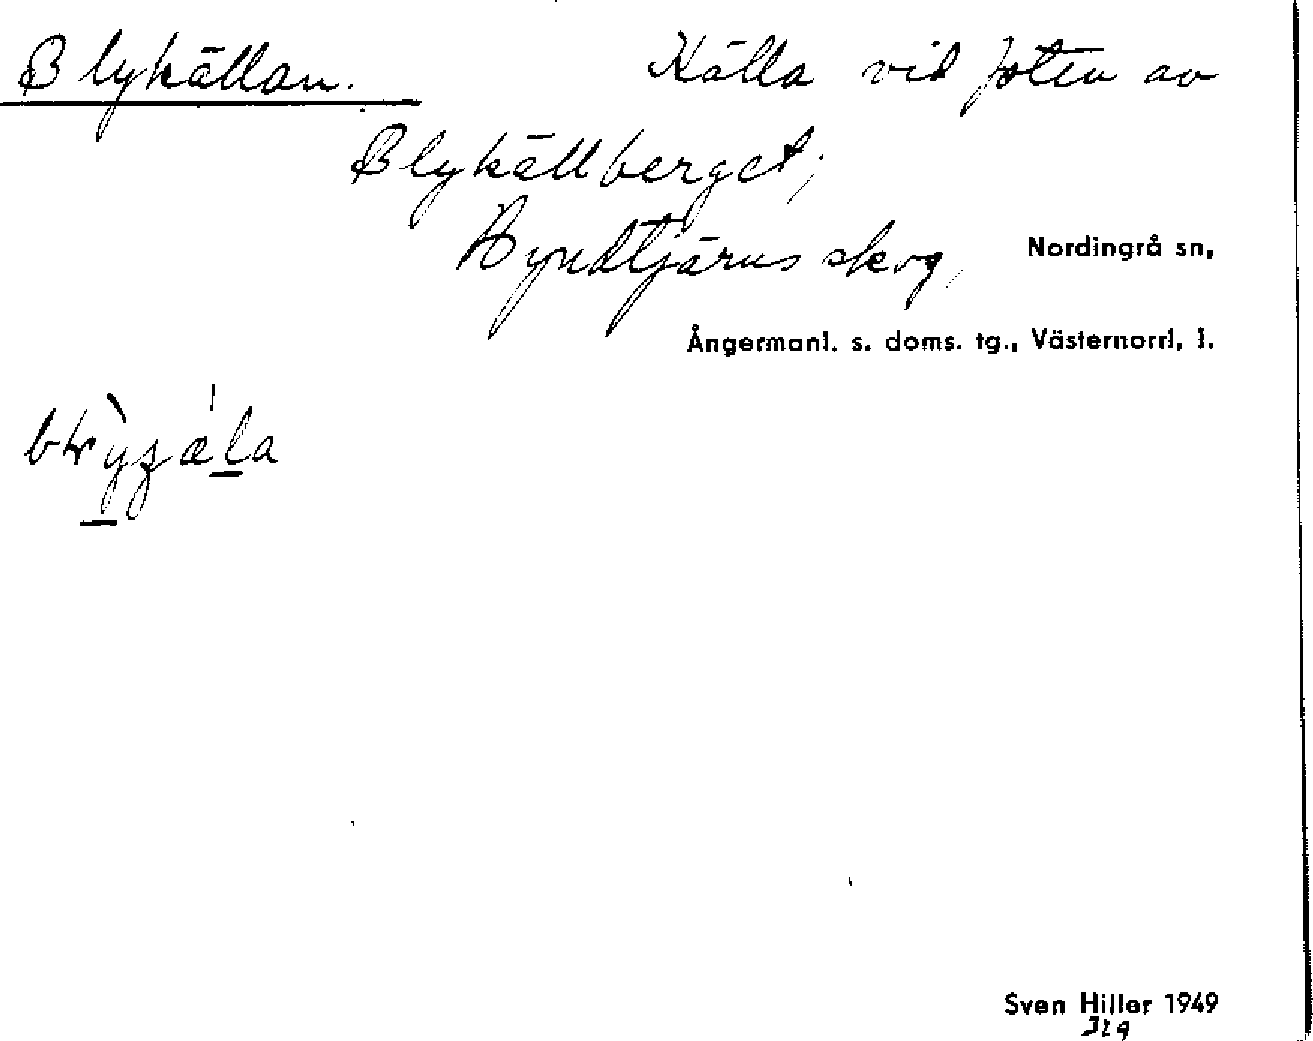 Blykällan. Källa vid foten av
Blykällberget;
skog, Nordingrå sn,
Ångermanl. s. doms. tg., Västernorrl. l.
Sven Hiller 1949